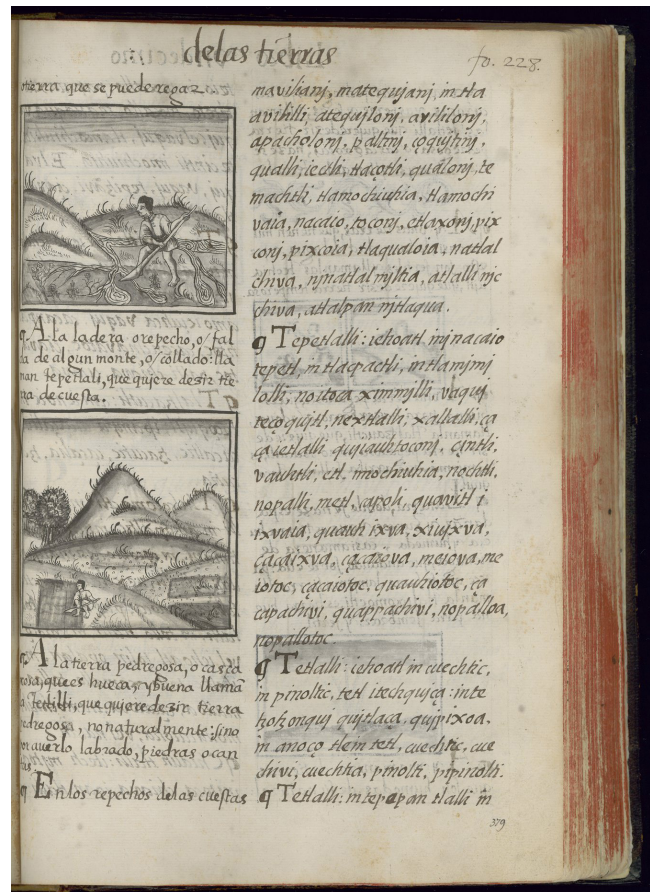 de las tierras
fo. 228.
tierra, que se puede regar
A la ladera o repecho, o fal
da de algun monte, o collado: lla
man tepetlali, que quiere desir tie
rra de cuesta.
A la tierra pedregosa, o casca
josa, que es hueca, y buena llamã
Tetlilli, que quiere dezir tierra
pedregosa, no naturalmente: sino
por averlo labrado, piedras o can
tos.
En los repechos de las cuestas
mavilianj, matequjanj, in tla
avililli, atequjlonj, avililonj,
apacholonj, paltinj, coqujtinj,
qualli, iectli, tlaçotli, qualonj, te
machtli, tlamochiuhia, tlamochi
vaia, nacaio, toconj, etlaxonj, pix
conj, pixcoia, tlaqualoia, natlal
chiva, njnatlalmjltia, atlalli njc
chiva, atlalpan njtlaqua.
¶ Tepetlalli: iehoatl inj nacaio
tepetl, in tlacpactli, in tlamjmj
lolli, no itoca ximmjlli, vaquj
teçoqujtl, nextlalli, xaltlalli, ça
ça ie tlalli, qujiauhtoconj, çintli,
vauhtli, etl, imochiuhia, nochtli,
nopalli, metl, capoli, quavitl i
ixvaia, quauh ixva, xiujxva,
çacaixva, çacaiova, meiova, me
iotoc, çacaiotoc, quauhiotoc, ça
capachivi, quappachivi, nopalloa,
nopallotoc
¶ Tetlalli: iehoatl in cuechtic,
in pinoltic, tetl itech qujça: in te
tzotzonquj qujtlaça, qujpixoa.
in anoço tlein tetl, cuechtic, cue
chivi, cuechtia, pinolti, pipinolti.
¶ Tetlalli: in tepepan tlalli in
379